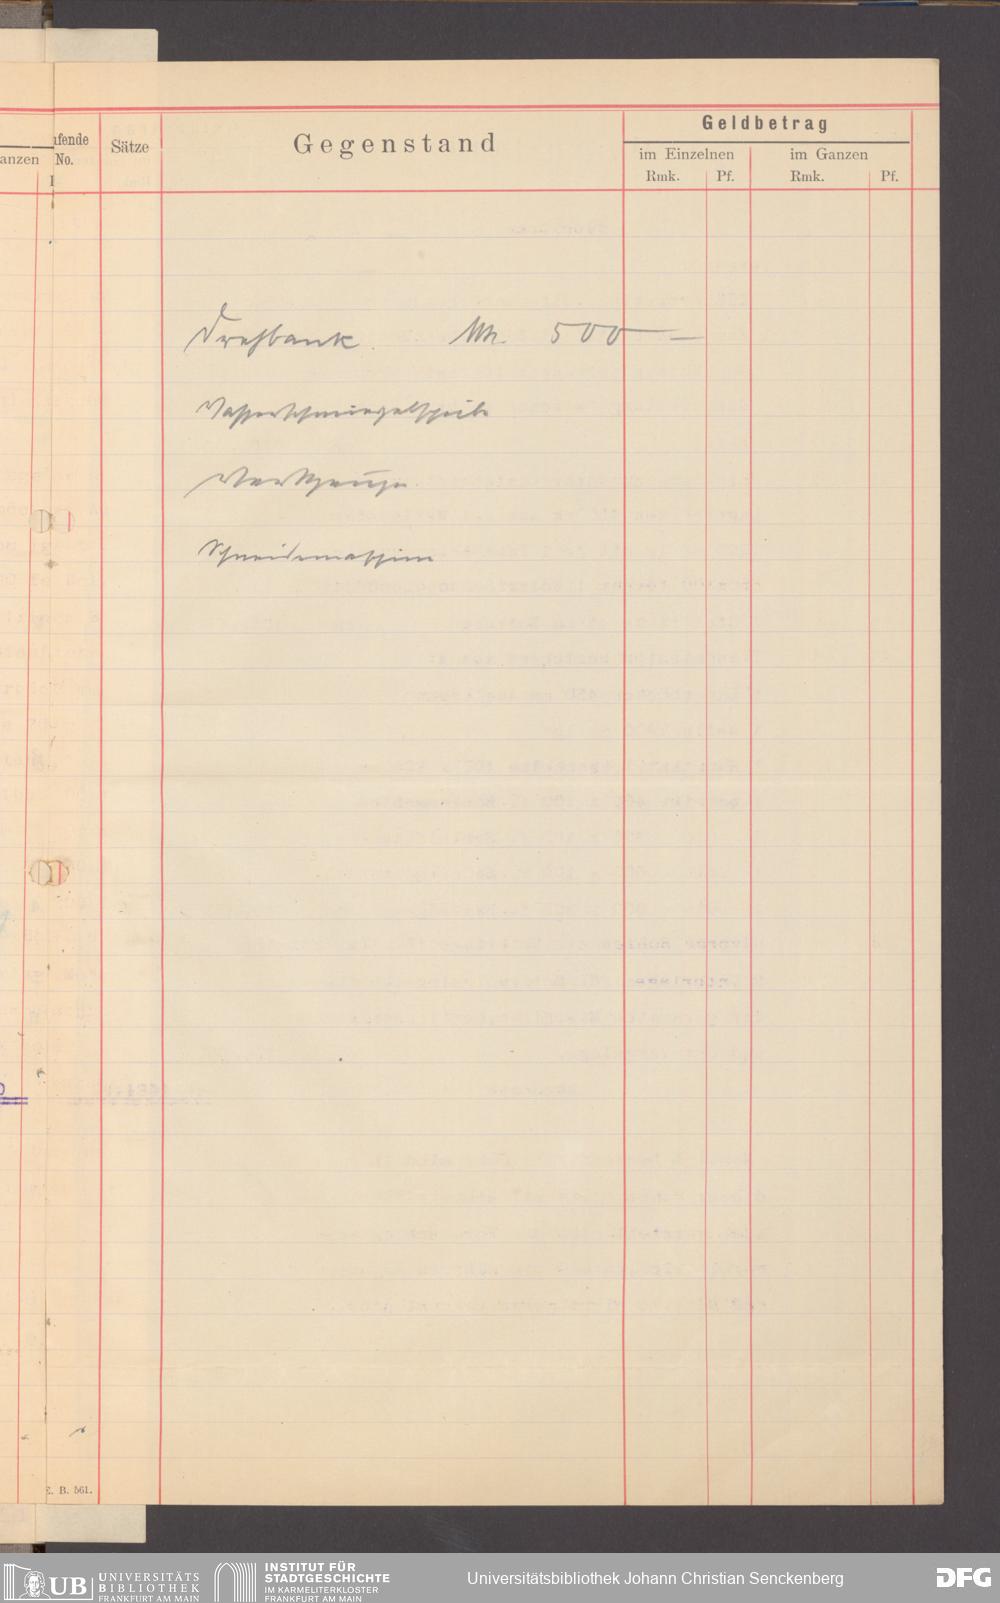 Geldbetrag
ufende
No.
anzen
Sätze
Gegenstand
im Einzelnen
im Ganzen
Rmk.
Pf.
Rmk.
Pf.
Drehbank. Mk. 500 —
Wasserschmirgelscheibe
Werkzeuge.
Schneidemaschine
E. B. 561.
UB UNIVERSITÄTS
BIBLIOTHEK
FRANKFURT AM MAIN
INSTITUT FÜR
STADTGESCHICHTE
IM KARMELITERKLOSTER
FRANKFURT AM MAIN
Universitätsbibliothek Johann Christian Senckenberg
DFG